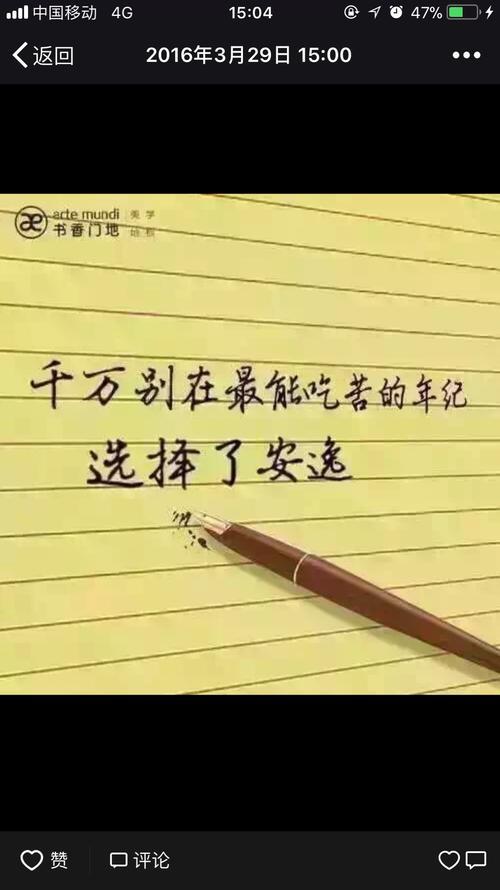 中国移动 4G 15:04 47%
返回 2016年3月29日 15:00
arte mundi 美学
书香门地 地板
千万别在最能吃苦的年纪
选择了安逸
赞 评论